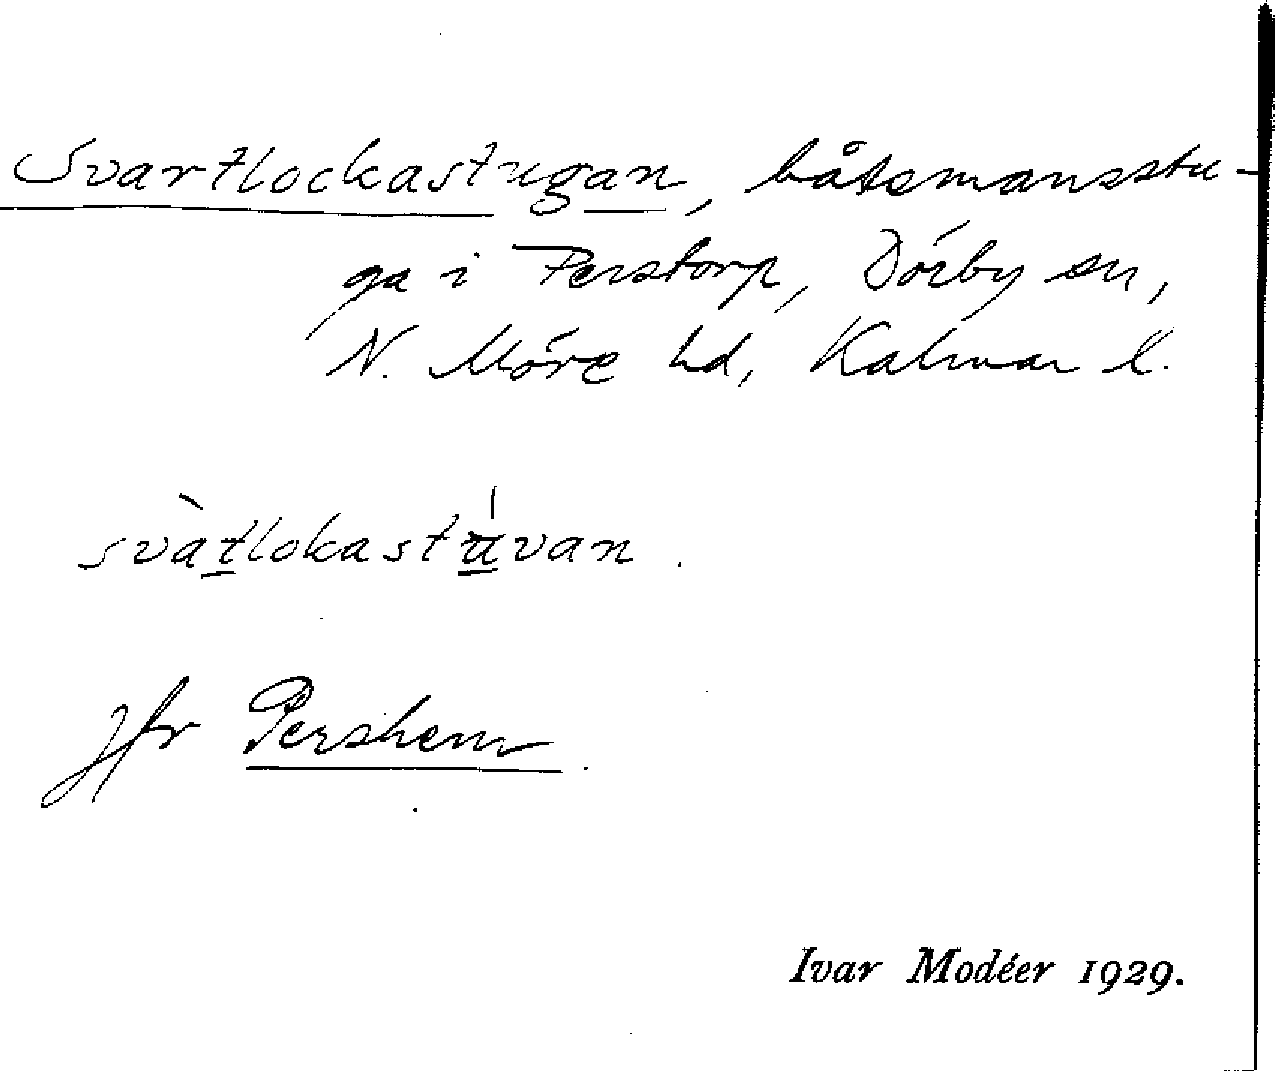 Svartlockastugan, båtsmansstu-
ga i Perstorp, Dörby sn,
N. Möre hd, Kalmar l.
svàtlokastu̇van.
Jfr Pershem.
Ivar Modéer 1929.